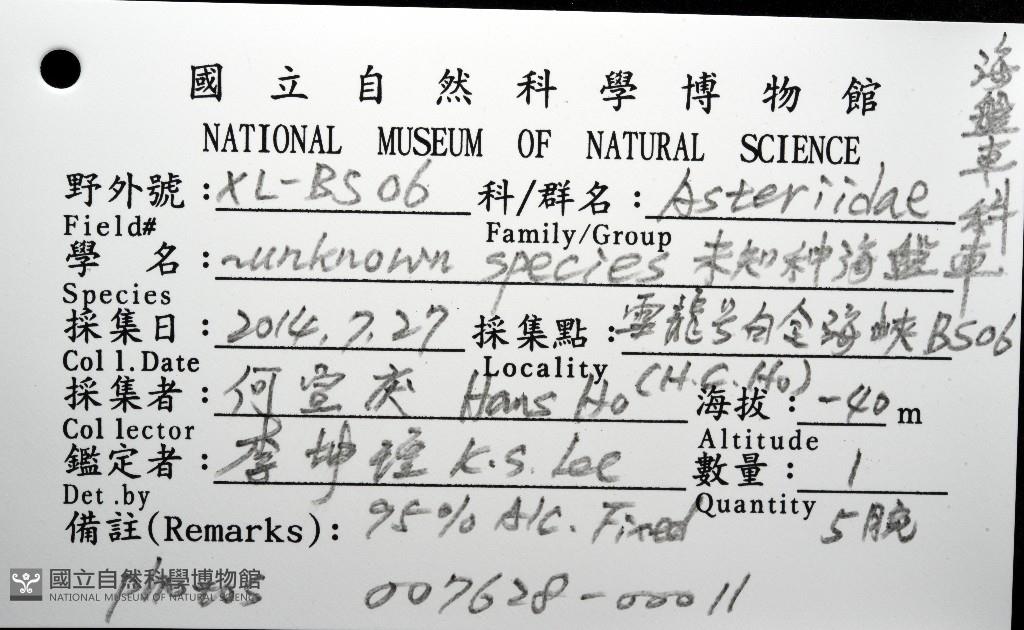 國立自然科學博物館
NATIONAL MUSEUM OF NATURAL SCIENCE
海盤車科
野外號：XL-BS06 科/群名：Asteriidae
Field# Family/Group
學名：~unknown species 未知种海盤車
Species
採集日：2014.7.27 採集點：雲龍号白令海峽BS06
Coll.Date Locality
採集者：何宣庆 Hans Ho (H.C.Ho) 海拔：-40m
Collector Altitude
鑑定者：李坤瑄 K.S. Lee 數量：1
Det.by Quantity
備註(Remarks)：95% Alc. Fixed 5腕
photos 007628-00011
國立自然科學博物館
NATIONAL MUSEUM OF NATURAL SCIENCE